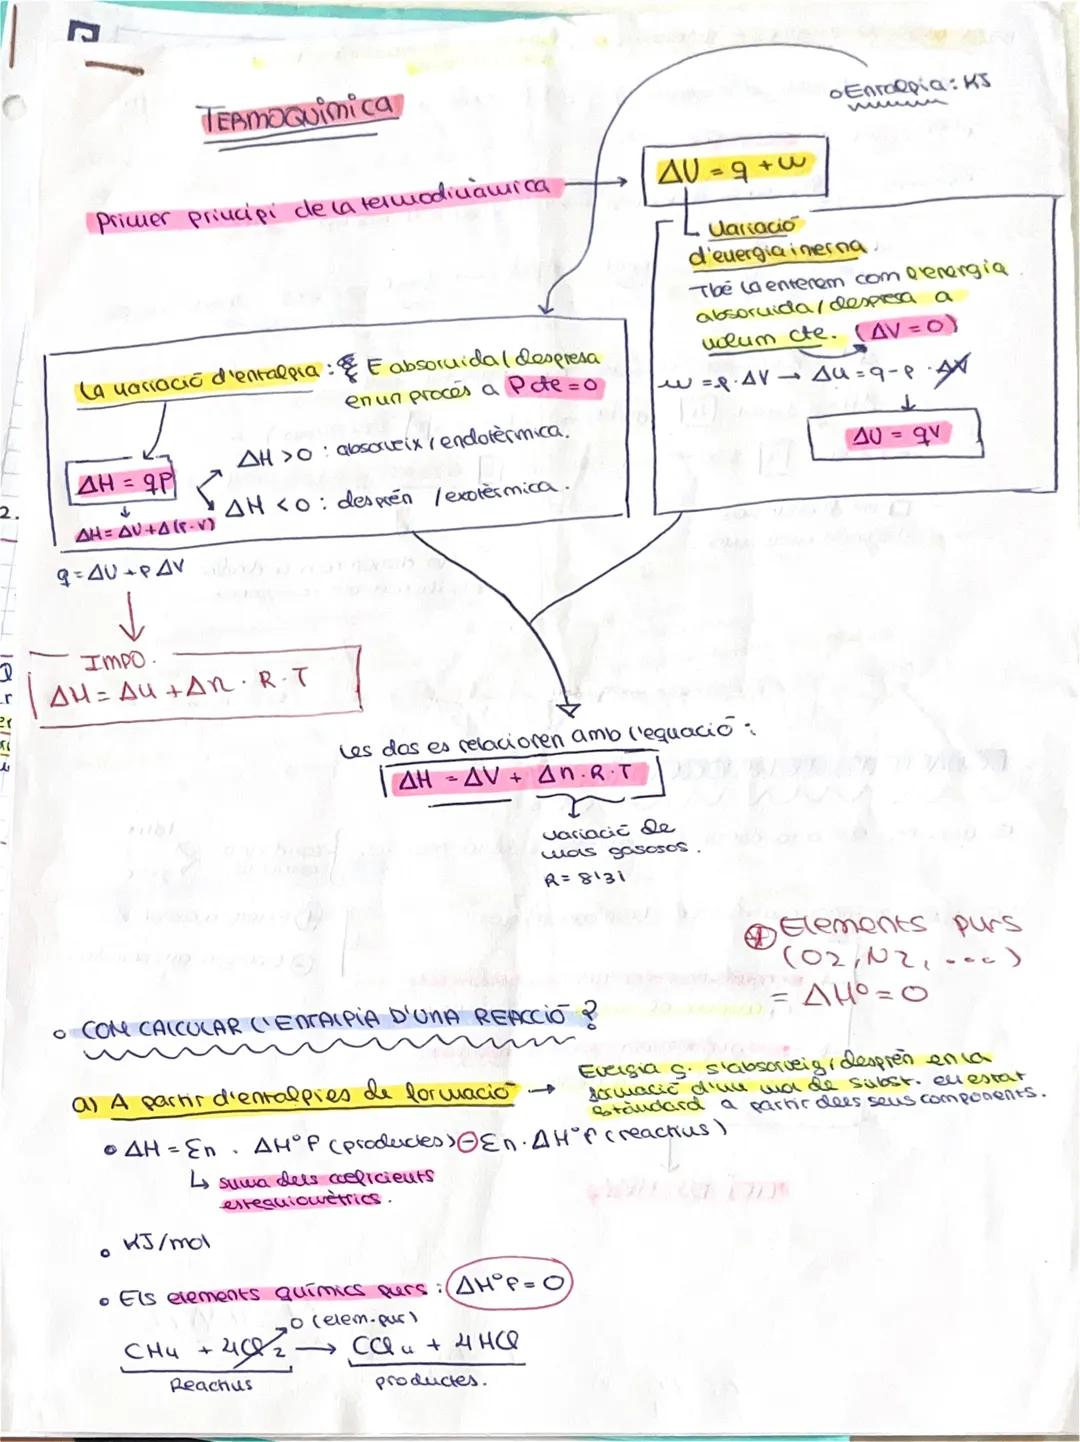 TERMOQUÍMICA
o Entalpia: KJ
Primer principi de la termodinàmica → ΔU = q + w
Variació
d'energia inerna.
Tbé la enterem com l'energia
absorvida / despresa a
volum cte. (ΔV = 0)
w = p · ΔV → ΔU = q - p · ΔV
ΔU = qv
La variació d'entalpia : E absorvida / despresa
en un procés a P cte = 0
ΔH = qp
ΔH > 0 : absorveix / endotèrmica.
ΔH < 0 : desprén / exotèrmica.
ΔH = ΔU + Δ(P·V)
q = ΔU + P ΔV
IMPO.
ΔH = ΔU + Δn · R · T
Les dos es relacioren amb l'equació :
ΔH = ΔV + Δn · R · T
variació de
mols gasosos.
R = 8'31
Elements purs
(O2, N2, ...)
= ΔH° = 0
o COM CALCULAR L'ENTALPIA D'UNA REACCIÓ ?
a) A partir d'entalpies de formació →
Energia q. s'absorveig / desprèn en la
formació d'un mol de subst. en estat
estàndard a partir dels seus components.
• ΔH = Σn · ΔH°f (productes) ⊖ Σn · ΔH°f (reactius)
↳ suma dels coeficients
estequiomètrics.
• KJ/mol
• Els elements químics purs : ΔH°f = 0
0 (elem. pur)
CH4 + 4Cl2 → CCl4 + 4 HCl
Reactius
productes.